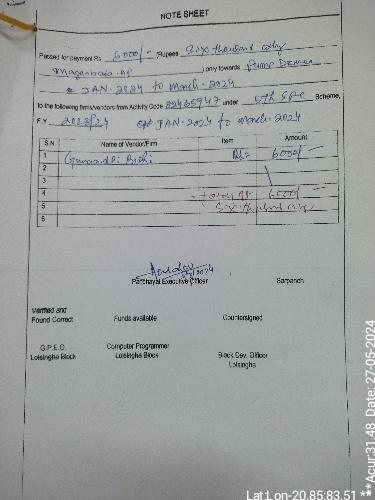 NOTE SHEET
Passed for payment Rs 6000/- (Rupees Six thousand only
) only towards Pump
JAN-2024 to March-2024
to the following firms/vendors from Activity Code 82465947 under 5th SFC Scheme,
F.Y. 2023/24 JAN-2024 to March-2024
S.N Name of Vendor/Firm Item Amount
1 6000/-
2
3
4 6000/-
5 Six thousand only
6
Panchayat Executive Officer Sarpanch
Verified and
Found Correct Funds available Countersigned
G.P.E.O. Computer Programmer Block Dev. Officer
Loisingha Block Loisingha Block Loisingha
Lat:Lon-20.85:83.51 ***Acur:31.48 Date: 27-05-2024